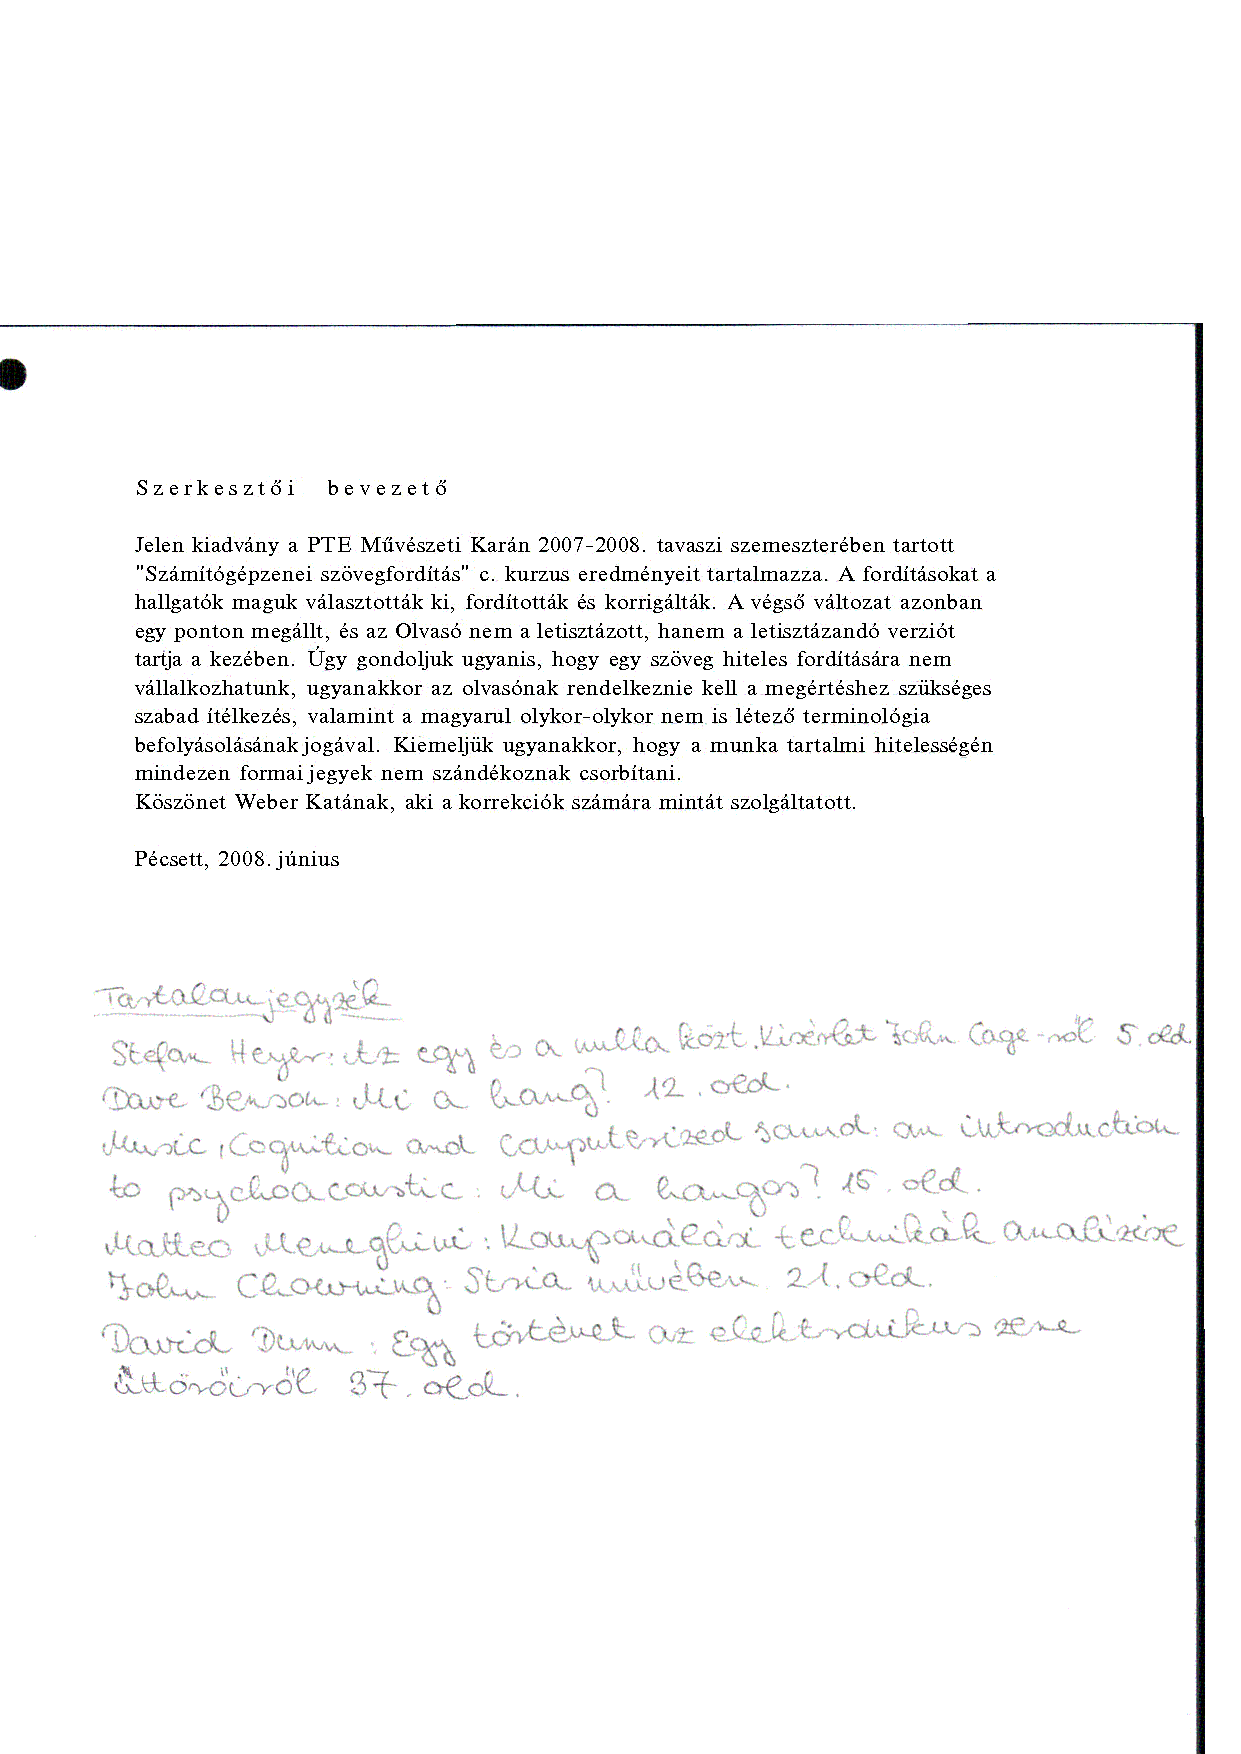 Szerkesztői bevezető
Jelen kiadvány a PTE Művészeti Karán 2007-2008. tavaszi szemeszterében tartott
"Számítógépzenei szövegfordítás" c. kurzus eredményeit tartalmazza. A fordításokat a
hallgatók maguk választották ki, fordították és korrigálták. A végső változat azonban
egy ponton megállt, és az Olvasó nem a letisztázott, hanem a letisztázandó verziót
tartja a kezében. Úgy gondoljuk ugyanis, hogy egy szöveg hiteles fordítására nem
vállalkozhatunk, ugyanakkor az olvasónak rendelkeznie kell a megértéshez szükséges
szabad ítélkezés, valamint a magyarul olykor-olykor nem is létező terminológia
befolyásolásának jogával. Kiemeljük ugyanakkor, hogy a munka tartalmi hitelességén
mindezen formai jegyek nem szándékoznak csorbítani.
Köszönet Weber Katának, aki a korrekciók számára mintát szolgáltatott.
Pécsett, 2008. június
Tartalomjegyzék
Stefan Heyer: Az egy és a nulla közt. Kisérlet John Cage-ről 5. old.
Dave Benson: Mi a hang? 12. old.
Music, Cognition and Computerized Sound: an introduction
to psychoacoustic: Mi a hangos? 15. old.
Matteo Meneghini: Komponálási technikák analízise
John Chowning: Stria művében 21. old.
David Dunn: Egy történet az elektronikus zene
úttörőiről 37. old.